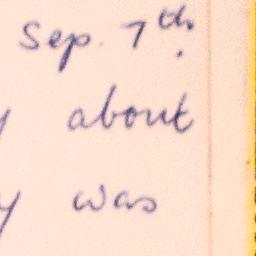 Sep. 7th.
y about
y was